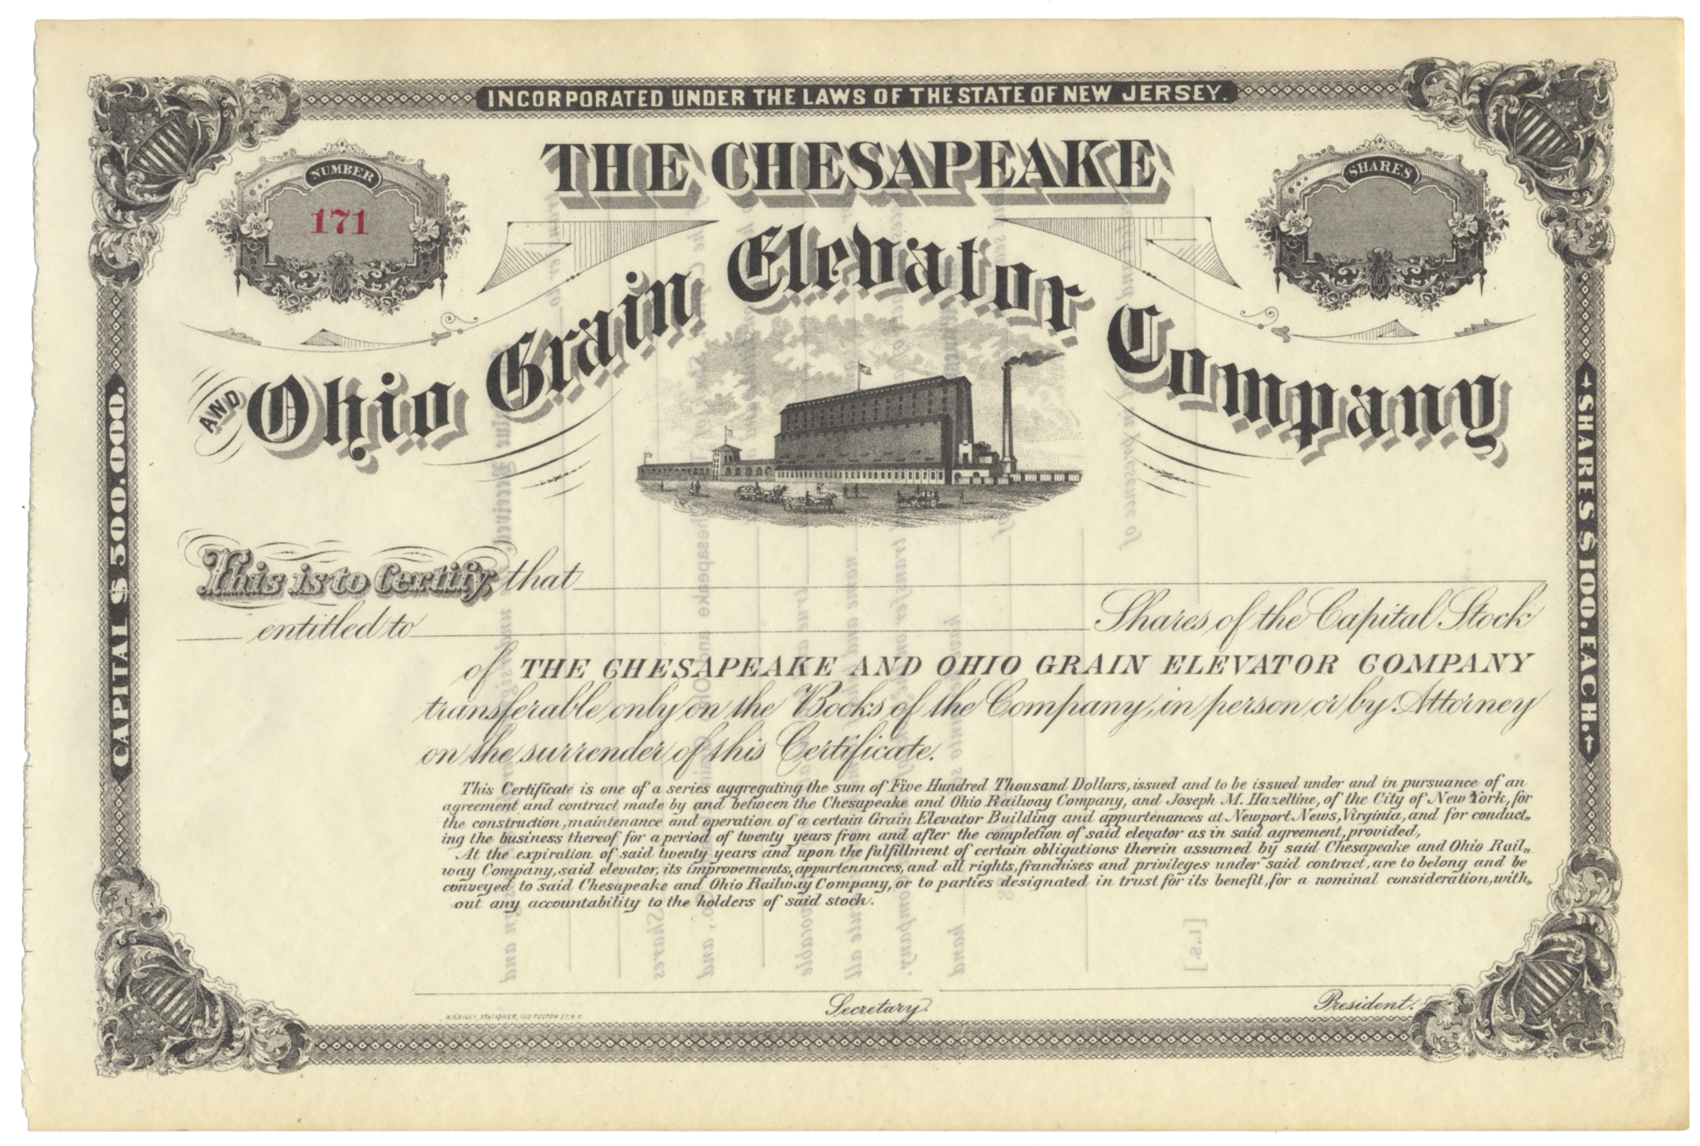 INCORPORATED UNDER THE LAWS OF THE STATE OF NEW JERSEY.
NUMBER
171
SHARES
THE CHESAPEAKE
AND Ohio Grain Elevator Company
CAPITAL $500.000.
SHARES $100. EACH.
This is to Certify, that
entitled to Shares of the Capital Stock
of THE CHESAPEAKE AND OHIO GRAIN ELEVATOR COMPANY
transferable only on the Books of the Company, in person or by Attorney
on the surrender of this Certificate.
This Certificate is one of a series aggregating the sum of Five Hundred Thousand Dollars, issued and to be issued under and in pursuance of an
agreement and contract made by and between the Chesapeake and Ohio Railway Company, and Joseph M. Hazeltine, of the City of New York, for
the construction, maintenance and operation of a certain Grain Elevator Building and appurtenances at Newport News, Virginia, and for conduct-
ing the business thereof for a period of twenty years from and after the completion of said elevator as in said agreement, provided,
At the expiration of said twenty years and upon the fulfillment of certain obligations therein assumed by said Chesapeake and Ohio Rail-
way Company, said elevator, its improvements, appurtenances, and all rights, franchises and privileges under said contract, are to belong and be
conveyed to said Chesapeake and Ohio Railway Company, or to parties designated in trust for its benefit, for a nominal consideration, with-
out any accountability to the holders of said stock.
Secretary.
President.
STATIONER, FULTON ST. N.Y.